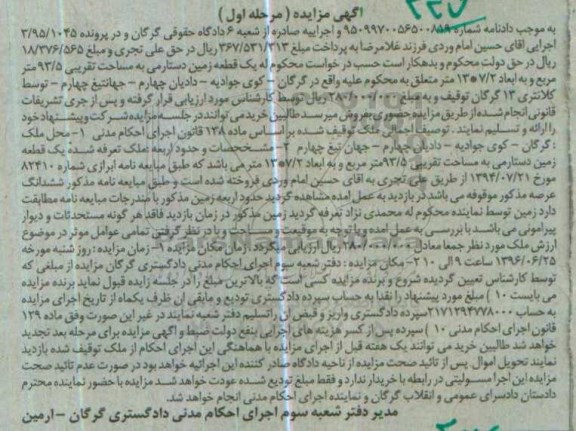 آگهی مزایده (مرحله اول)
به موجب دادنامه شماره ۹۵۰۹۹۷۰۰۵۶۵۰۰۸۵۹ و اجراییه صادره از شعبه ۶ دادگاه حقوقی گرگان و در پرونده ۳/۹۵/۱۰۴۵
اجرایی اقای حسین امام وردی فرزند غلامرضا به پرداخت مبلغ ۳۶۷/۵۳۱/۳۱۳ ریال در حق علی تجری و مبلغ ۱۸/۳۷۶/۵۶۵
ریال در حق دولت محکوم و بدهکار است حسب درخواست محکوم له یک قطعه زمین دستارمی به مساحت تقریبی ۹۳/۵ متر
مربع و به ابعاد ۷/۲*۱۳ متر متعلق به محکوم علیه واقع در گرگان - کوی جوادیه - دادیان چهارم - جهانتیغ چهارم - توسط
کلانتری ۱۳ گرگان توقیف و به مبلغ ۲۸۰/۰۰۰/۰۰۰ ریال توسط کارشناس مورد ارزیابی قرار گرفته و پس از جری تشریفات
قانونی انجام شده از طریق مزایده حضوری بفروش میرسد طالبین خرید می توانند در جلسه مزایده شرکت و پیشنهاد خود
را ارائه و تسلیم نمایند. توصیف اجمالی ملک توقیف شده بر اساس ماده ۱۳۸ قانون اجرای احکام مدنی ۱- محل ملک
: گرگان - کوی جوادیه - دادیان چهارم - جهان تیغ چهارم ۲- مشخصات و حدود اربعه: ملک تعرفه شده یک قطعه
زمین دستارمی به مساحت تقریبی ۹۳/۵ متر مربع و به ابعاد ۷/۲*۱۳ متر می باشد که طبق مبایعه نامه ابرازی شماره ۸۲۴۱۰
مورخ ۱۳۹۴/۰۷/۲۱ از طریق علی تجری به اقای حسین امام وردی فروخته شده است و طبق مبایعه نامه مذکور ششدانگ
عرصه مذکور موقوفه می باشد در بازدید به عمل امده مشاهده گردید حدود اربعه زمین مذکور با مندرجات مبایعه نامه مطابقت
دارد زمین توسط نماینده محکوم له محمدی نژاد تعرفه گردید زمین مذکور در زمان بازدید فاقد هر گونه مستحدثات و دیوار
پیرامونی می باشد با بررسی به عمل امده و با توجه به موقعیت مساحت و با در نظر گرفتن تمامی عوامل موثر در موضوع
ارزش ملک مورد نظر جمعا معادل ۲۸۰/۰۰۰/۰۰۰ ریال ارزیابی میگردد زمان مکان مزایده ۱- زمان مزایده: روز شنبه مورخه
۱۳۹۶/۰۶/۲۵ ساعت ۹ الی ۱۰ ۲- مکان مزایده: دفتر شعبه سوم اجرای احکام مدنی دادگستری گرگان مزایده از مبلغی که
توسط کارشناس تعیین گردیده شروع و برنده مزایده کسی است که بالاترین مبلغ را در جلسه زایده قبول نماید برنده مزایده
می بایست ۱۰٪ مبلغ مورد پیشنهاد را نقدا به حساب سپرده دادگستری تودیع و مابقی ان ظرف یکماه از تاریخ اجرای مزایده
به حساب ۲۱۷۱۲۹۴۷۷۸۰۰۰ سپرده دادگستری واریز و قبض ان را تسلیم دفتر شعبه نمایند در غیر این صورت وفق ماده ۱۲۹
قانون اجرای احکام مدنی ۱۰٪ سپرده پس از کسر هزینه های اجرایی بنفع دولت ضبط و اگهی مزایده برای مرحله بعد تجدید
خواهد شد طالبین خرید می توانند یک هفته قبل از اجرای مزایده با هماهنگی این اجرای احکام از ملک توقیف شده بازدید
نمایند تحویل اموال پس از تائید صحت مزایده از ناحیه دادگاه صادر کننده این اجرائیه خواهد بود در صورت عدم تائید صحت
مزایده این اجرا مسولیتی در رابطه با خریدار ندارد و فقط مبلغ تودیع شده عودت خواهد شد مزایده با حضور نماینده محترم
دادستان دادسرای عمومی و انقلاب گرگان و نماینده اجرای احکام مدنی انجام خواهد شد.
مدیر دفتر شعبه سوم اجرای احکام مدنی دادگستری گرگان - ارمین